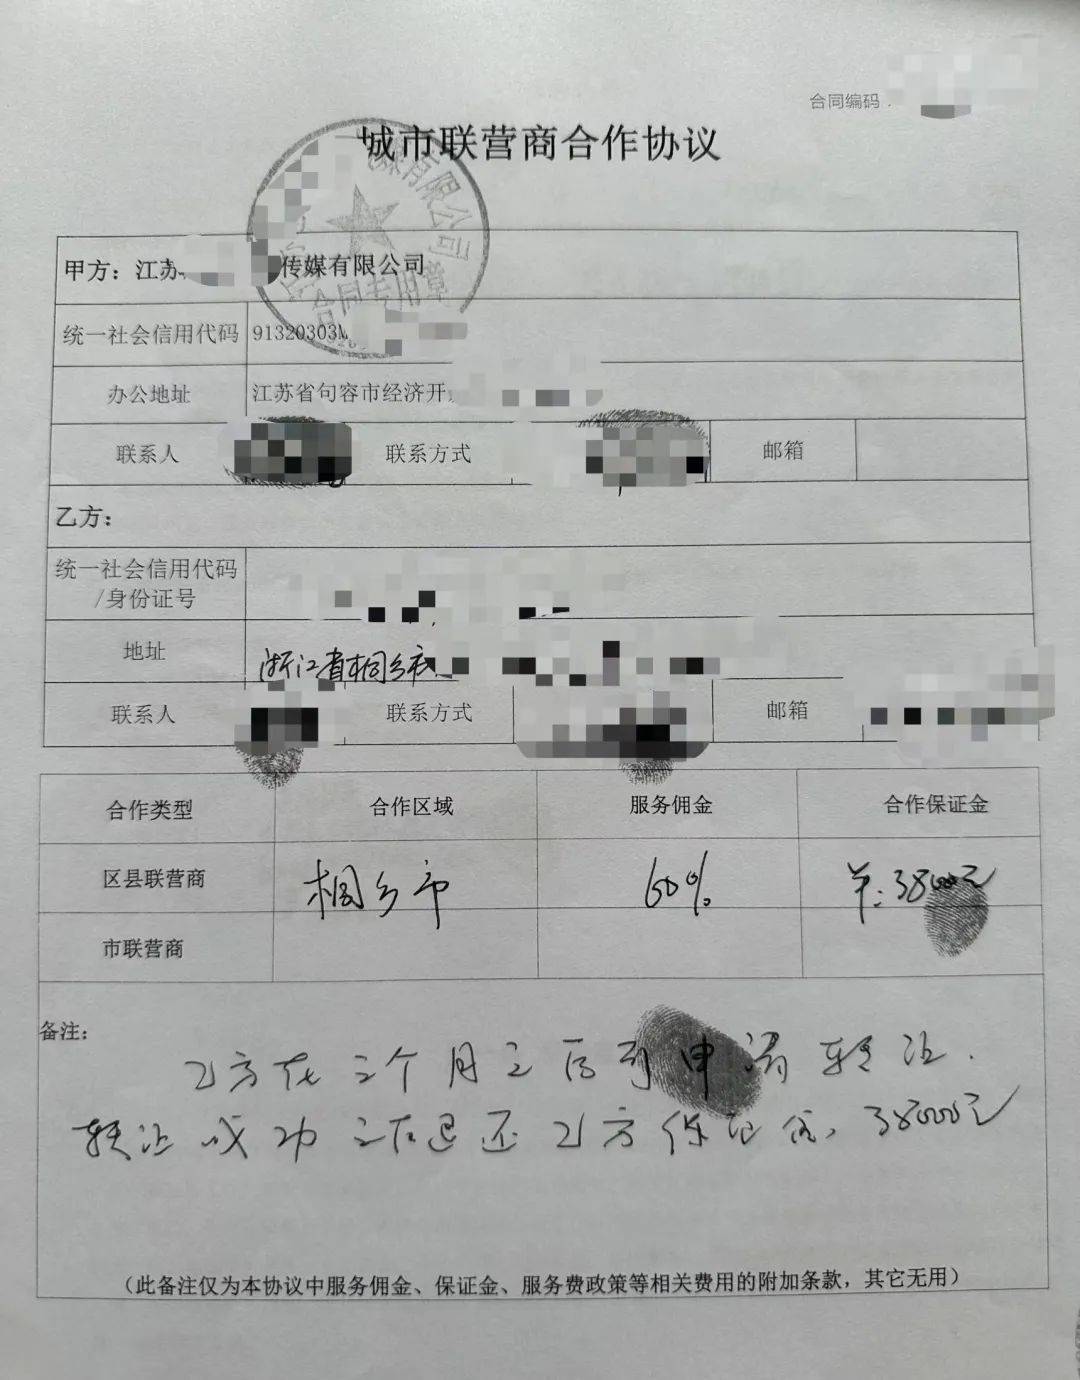 合同编码:
城市联营商合作协议
有限公司
合同专用章
甲方：江苏 传媒有限公司
统一社会信用代码 91320303M
办公地址 江苏省句容市经济开
联系人 联系方式 邮箱
乙方：
统一社会信用代码
/身份证号
地址 浙江省桐乡市
联系人 联系方式 邮箱
合作类型 合作区域 服务佣金 合作保证金
区县联营商 桐乡市 60% 38000元
市联营商
备注：
乙方在三个月之后可申请转让.
转让成功之后退还乙方保证金, 38000元
（此备注仅为本协议中服务佣金、保证金、服务费政策等相关费用的附加条款，其它无用）